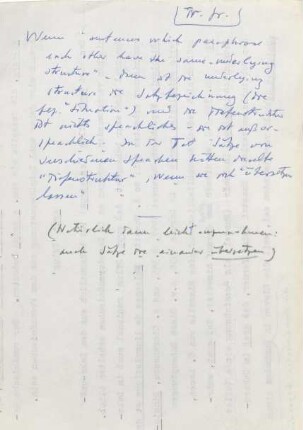 Wenn "sentences which paraphrase
each other have the same underlying
structure" – dann ist die underlying
structure die Satzbezeichnung (die
"Situation") und die Tiefenstruktur
ist nichts sprachliches – sie ist außer-
sprachlich. In der Tat Sätze von
verschiedenen Sprachen hätten dieselbe
"Tiefenstruktur", wenn sie sich "übersetzen
lassen"
(Natürlich kann leicht angenommen:
auch Sätze die einander übersetzen)